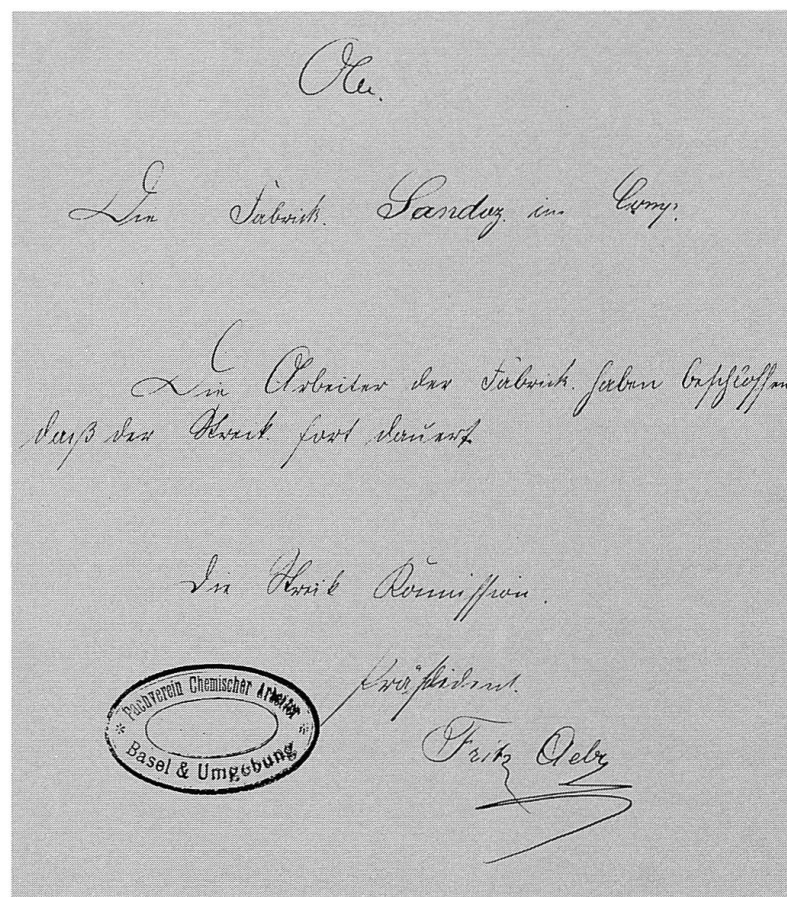 An.
Die Fabrick. Sandoz. in Comp.
Die Arbeiter der Fabrick. haben beschloßen
daß der Streck. fort dauert
Die Streik Kommission.
Präsident.
Fritz Aeby
Fachverein Chemischer Arbeiter
Basel & Umgebung